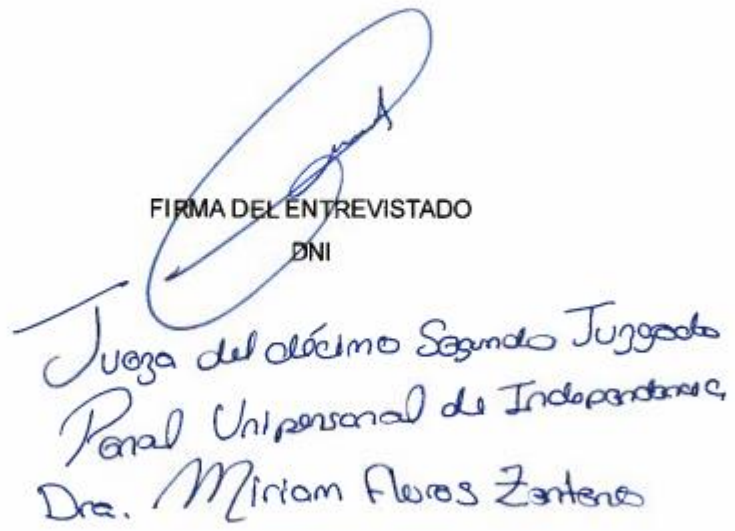 FIRMA DEL ENTREVISTADO
DNI
Jueza del décimo Segundo Juzgado
Penal Unipersonal de Independencia
Dra. Miriam Flores Zenteno